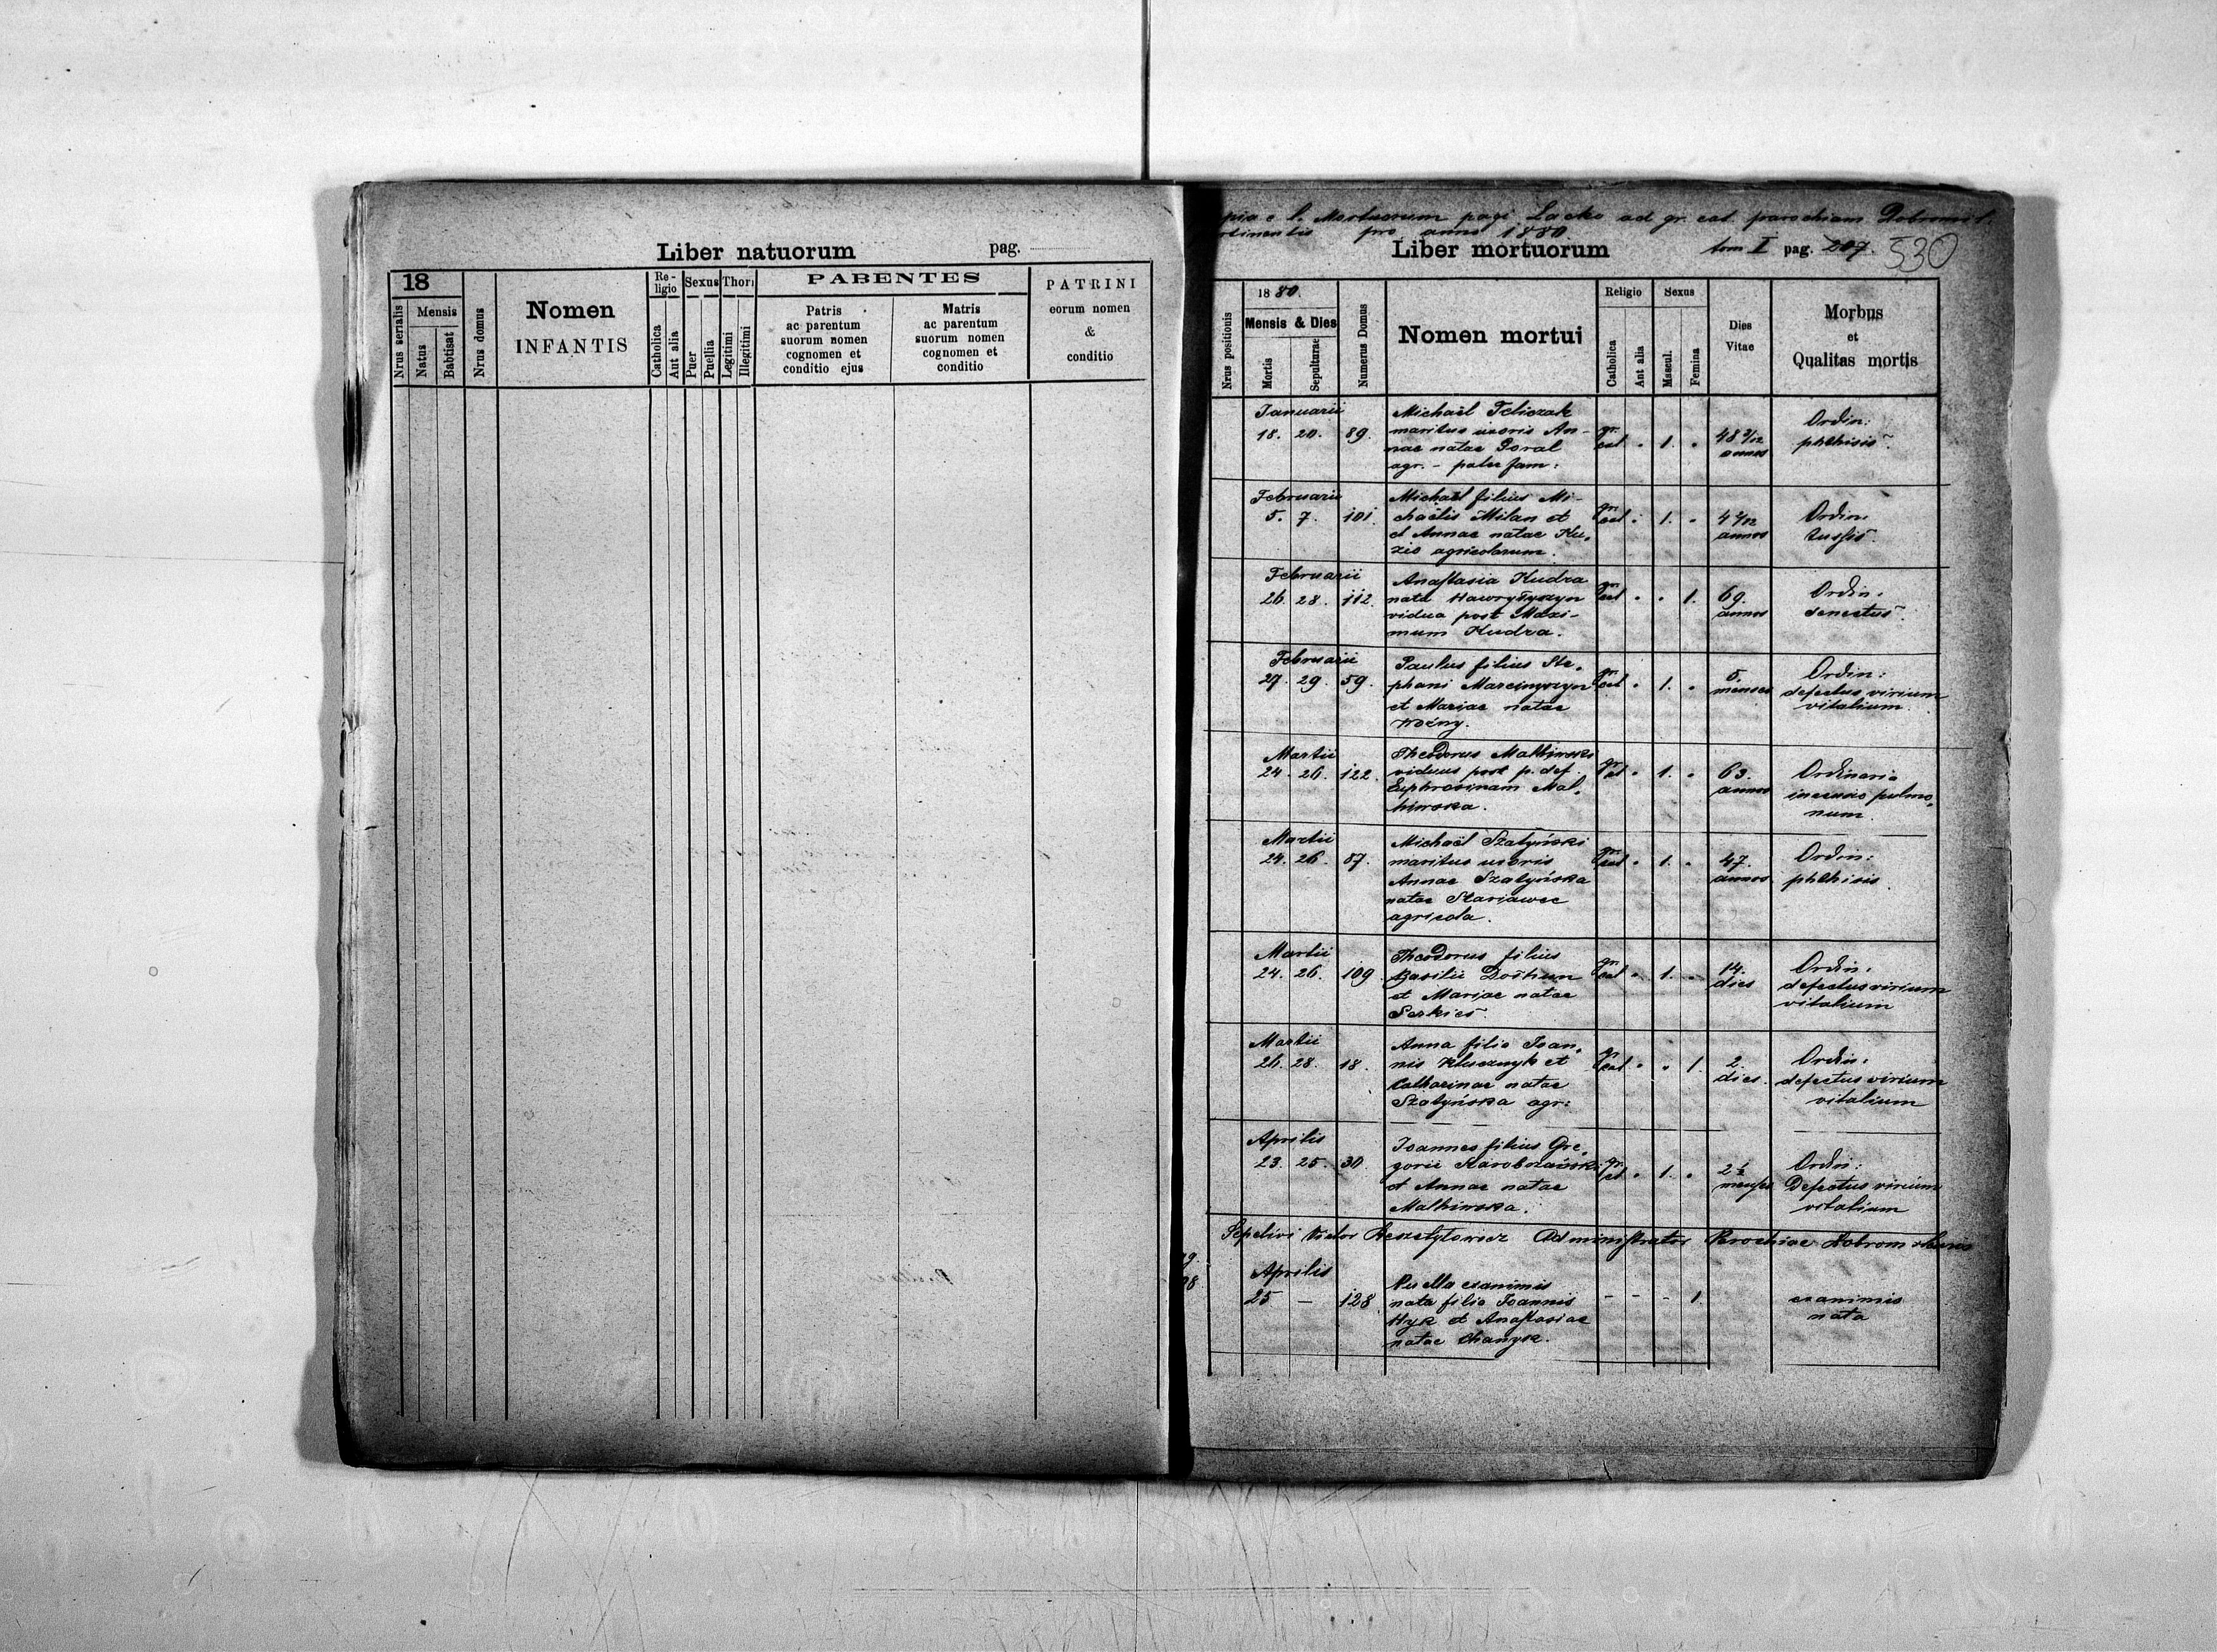 Liber natuorum pag.
18
Nrus serialis
Mensis
Natus
Babtisat
Nrus domus
Nomen
INFANTIS
Re-
ligio
Catholica
Aut alia
Sexus
Puer
Puella
Thori
Legitimi
Illegitimi
PARENTES
Patris
ac parentum
suorum nomen
cognomen et
conditio ejus
Matris
ac parentum
suorum nomen
cognomen et
conditio
PATRINI
eorum nomen
&
conditio
pia e l. Mortuorum pagi Lacko ad gr. cat. parochiam Dobromil
rtinentis pro anno 1880
Liber mortuorum tom I pag. 207. 530
Nrus positionis
1880.
Mensis & Dies
Mortis
Sepulturae
Numerus Domus
Nomen mortui
Religio
Catholica
Aut alia
Sexus
Mascul.
Femina
Dies
Vitae
Morbus
et
Qualitas mortis
Januarii
18. 20. 89.
Michaël
maritus uxoris An-
nae natae Goral
agr. - pater fam:
gr.
cat. 1.
48 3/12
annos
Ordin:
phthisis
Februarii
5. 7. 101.
Michaël filius Mi-
chaëlis Milan et
et Annae natae Ku-
zio agricolarum.
gr.
cat. 1.
annos
Ordin.
tussis.
Februarii
26. 28. 112.
Anastasia Kudra
nata Hawryłyszyn
vidua post Maxi-
mum Kudra.
gr.
cat 1.
69.
annos
Ordin:
senectus.
Februarii
27. 29. 59.
Paulus filius Ste-
phani Marcinyszyn
et Mariae natae
Woźny.
gr.
cat 1.
5.
menses
Ordin:
defectus virium
vitalium.
Martii
24. 26. 122.
Theodorus Malhiwski
viduus post p. def.
Euphrosinam Mal-
hiwska.
gr.
cat 1.
63.
annos
Ordinaria
pulmo-
num
Martii
24. 26. 87.
Michaël Szatyński
maritus uxoris
Annae Szatyńska
natae Stariawec
agricola.
gr.
cat 1.
47.
annos
Ordin:
phthisis.
Martii
24. 26. 109
Theodorus filius
Basilii
et Mariae natae
gr.
cat 1.
14.
dies
Ordin:
defectus virium
vitalium
Martii
26. 28. 18.
Anna filia Joan-
nis Klucznyk et
Catharinae natae
Szatyńska agr:
gr.
cat 1.
2.
dies.
Ordin:
defectus virium
vitalium
Aprilis
23. 25. 30.
Joannes filius Gre-
gorii
et Annae natae
Malhiwska.
gr.
cat 1.
2½
menses
Ordin:
Defectus virium
vitalium
Sepelivi Victor Administrator Parochiae
Aprilis
25 — 128
Puella exanimis
nata filia Joannis
Hyk et Anastasiae
natae Chanyk.
- - - 1.
exanimis
nata